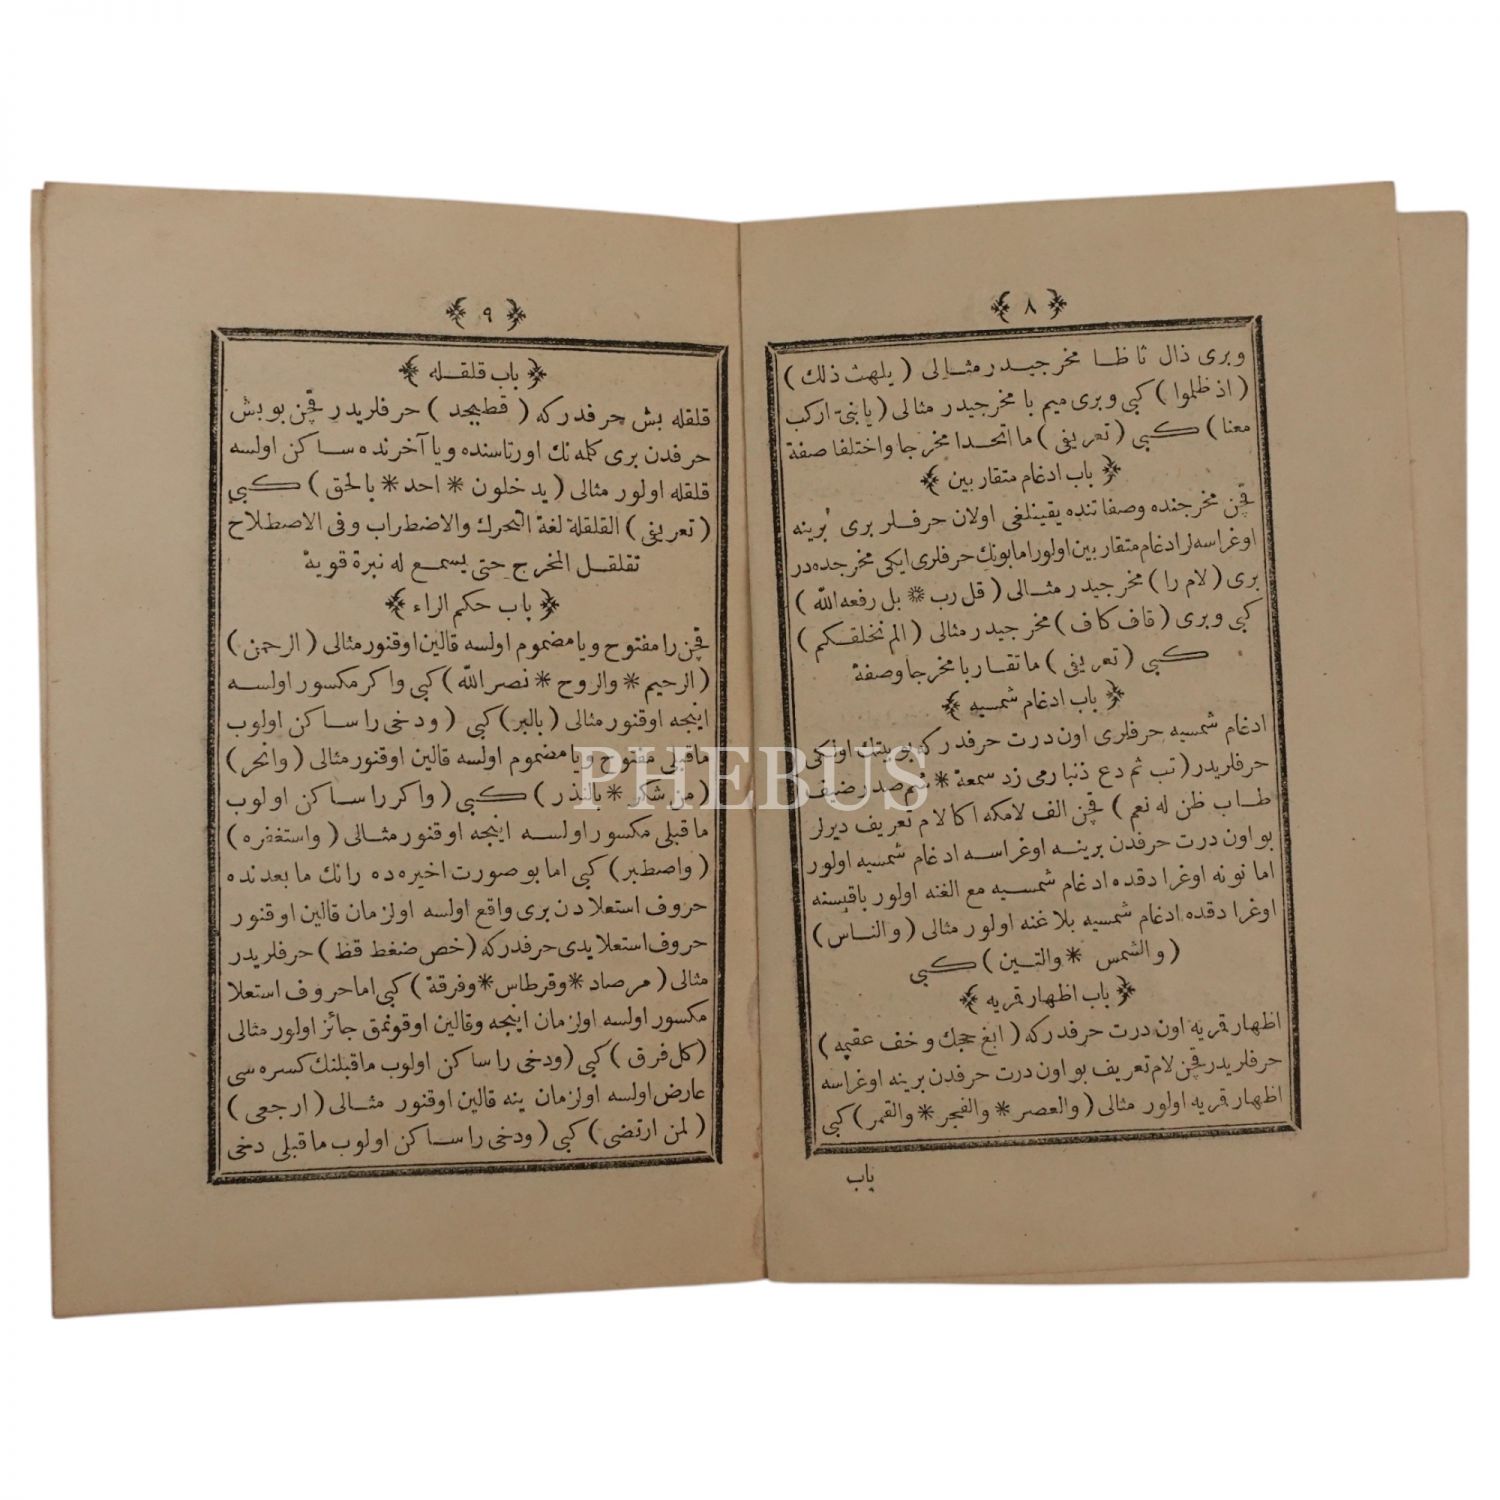 ٨
وبری ذال ثا ظا مخرجیدر مثالی ( یلهث ذلك )
( اذ ظلموا ) کبی وبری میم با مخرجیدر مثالی ( یا بنیّ ارکب
معنا ) کبی ( تعریفی ) ما اتحدا مخرجا واختلفا صفة
باب ادغام متقاربین
قچن مخرجنده وصفاتنده یقینلغی اولان حرفلر بری برینه
اوغراسه لر ادغام متقاربین اولور اما بونك حرفلری ایکی مخرجده در
بری ( لام را ) مخرجیدر مثالی ( قل رب * بل رفعه الله )
کبی وبری ( قاف کاف ) مخرجیدر مثالی ( الم نخلقکم )
کبی ( تعریفی ) ما تقاربا مخرجا وصفة
باب ادغام شمسیه
ادغام شمسیه حرفلری اون درت حرفدرکه بو بیتك اونکی
حرفلریدر ( تب ثم دع ذنبا رمی زد سمعة * شم صدر ضیف
طاب ظن له نعم ) قچن الف لامکه اکا لام تعریف دیرلر
بو اون درت حرفدن برینه اوغراسه ادغام شمسیه اولور
اما نونه اوغرادقده ادغام شمسیه مع الغنه اولور باقیسنه
اوغرادقده ادغام شمسیه بلاغنه اولور مثالی ( والناس )
( والشمس * والتین ) کبی
باب اظهار قمریه
اظهار قمریه اون درت حرفدرکه ( ابغ حجك وخف عقیمه )
حرفلریدر قچن لام تعریف بو اون درت حرفدن برینه اوغراسه
اظهار قمریه اولور مثالی ( والعصر * والفجر * والقمر ) کبی
باب
٩
باب قلقله
قلقله بش حرفدرکه ( قطبجد ) حرفلریدر قچن بو بش
حرفدن بری کلمه نك اورتاسنده ویا آخرنده ساکن اولسه
قلقله اولور مثالی ( یدخلون * احد * بالحق ) کبی
( تعریفی ) القلقلة لغة التحرك والاضطراب وفی الاصطلاح
تقلقل المخرج حتی یسمع له نبرة قویة
باب حکم الراء
قچن را مفتوح ویا مضموم اولسه قالین اوقنور مثالی ( الرحمن )
( الرحیم * والروح * نصرالله ) کبی واکر مکسور اولسه
اینجه اوقنور مثالی ( بالبر ) کبی ( ودخی را ساکن اولوب
ماقبلی مفتوح ویا مضموم اولسه قالین اوقنور مثالی ( وانحر )
( من شکر * بالنذر ) کبی ( واکر را ساکن اولوب
ماقبلی مکسور اولسه اینجه اوقنور مثالی ( واستغفره )
( واصطبر ) کبی اما بو صورت اخیره ده رانك ما بعدنده
حروف استعلادن بری واقع اولسه اول زمان قالین اوقنور
حروف استعلا یدی حرفدرکه ( خص ضغط قظ ) حرفلریدر
مثالی ( مرصاد * وقرطاس * وفرقة ) کبی اما حروف استعلا
مکسور اولسه اول زمان اینجه وقالین اوقونمق جائز اولور مثالی
( کل فرق ) کبی ( ودخی را ساکن اولوب ماقبلنك کسره سی
عارض اولسه اول زمان ینه قالین اوقنور مثالی ( ارجعی )
( لمن ارتضی ) کبی ( ودخی را ساکن اولوب ماقبلی دخی
PHEBUS